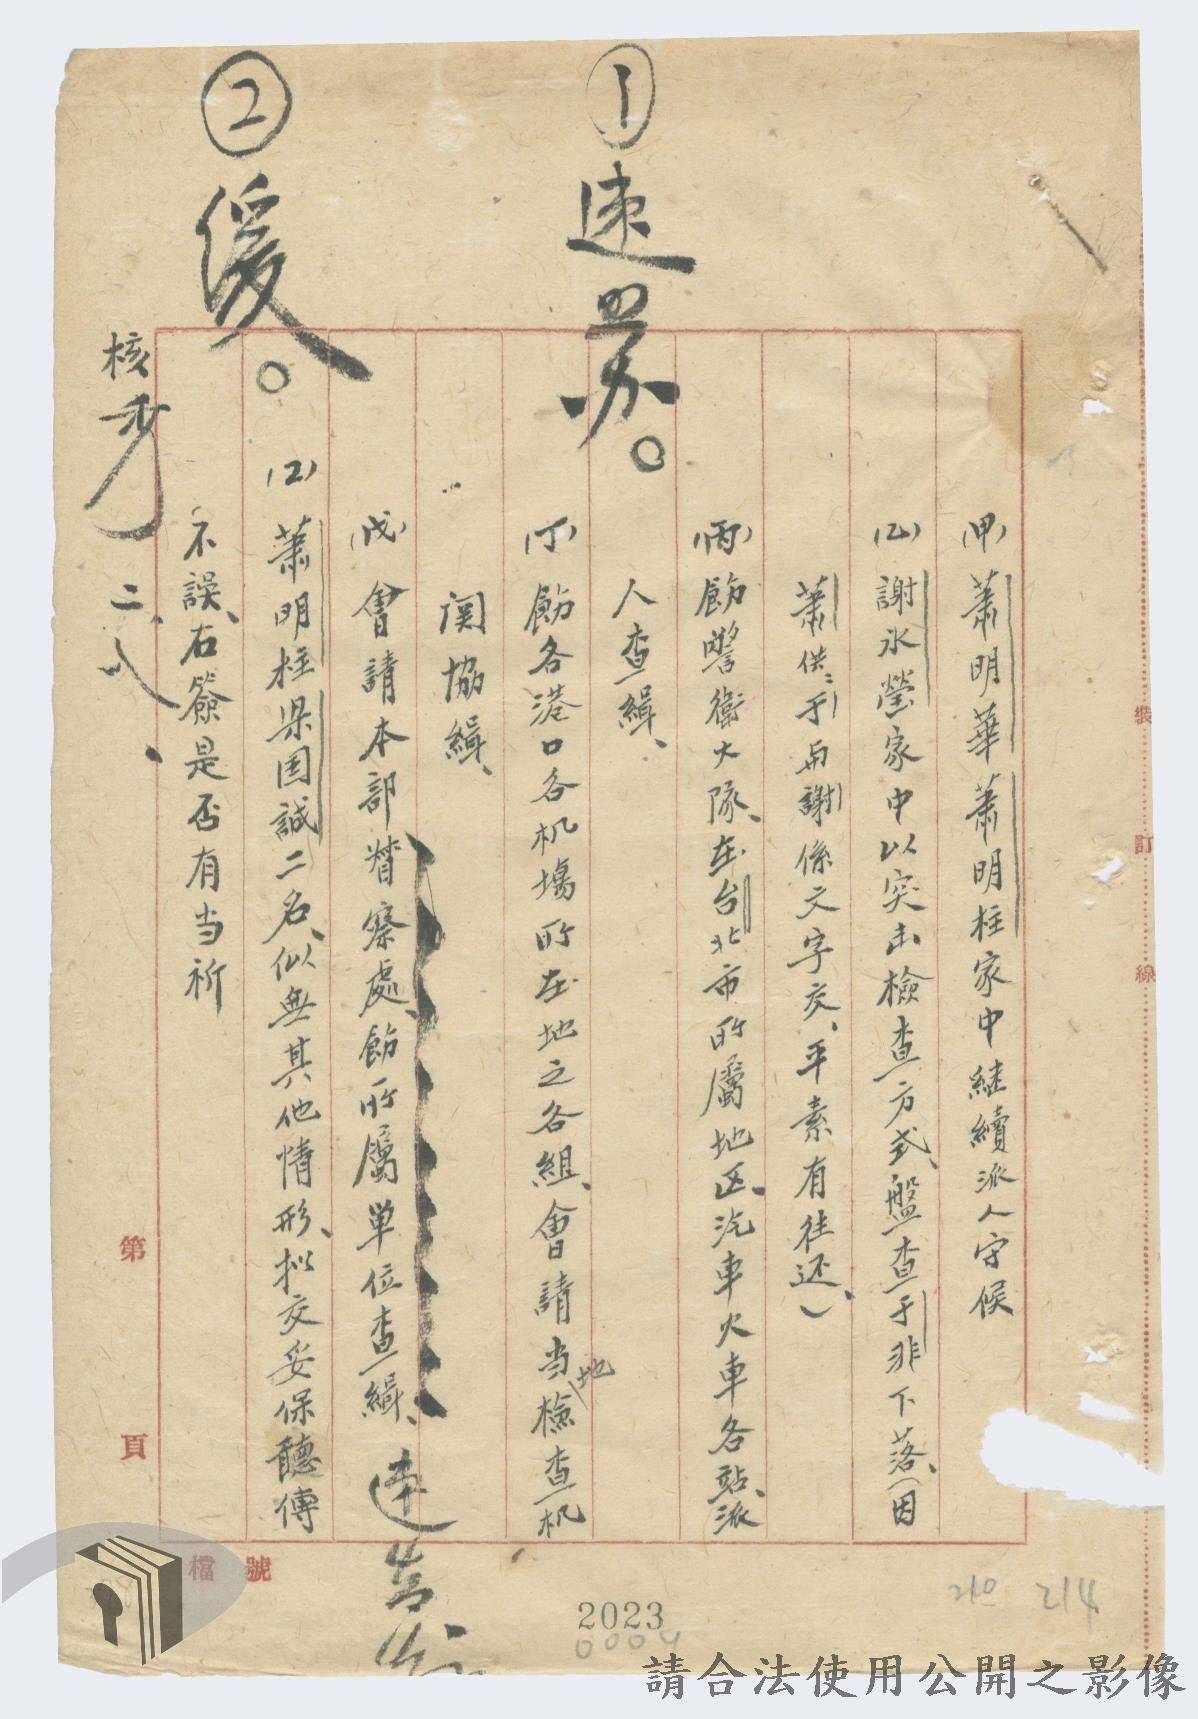 ①速办。
(甲)蕭明華蕭明柱家中継續派人守候
(乙)謝永瑩家中以突击檢查方式、盤查于非下落、(因
蕭供:于兩謝係文字交、平素有往还、)
(丙)飭警衛大隊、在台北市所屬地区、汽車火車各站、派
人查緝、
(丁)飭各港口各机場所在地之各組、會請当地檢查机
関協緝、
(戊)會請本部督察處、飭所屬单位查緝、
②緩。
(2)蕭明柱梁国誠二名、似無其他情形、拟交妥保聽傳
不誤、右簽是否有当祈
核
二、八、
裝
訂
線
第
頁
檔 號
2023
0004
210 214
請合法使用公開之影像